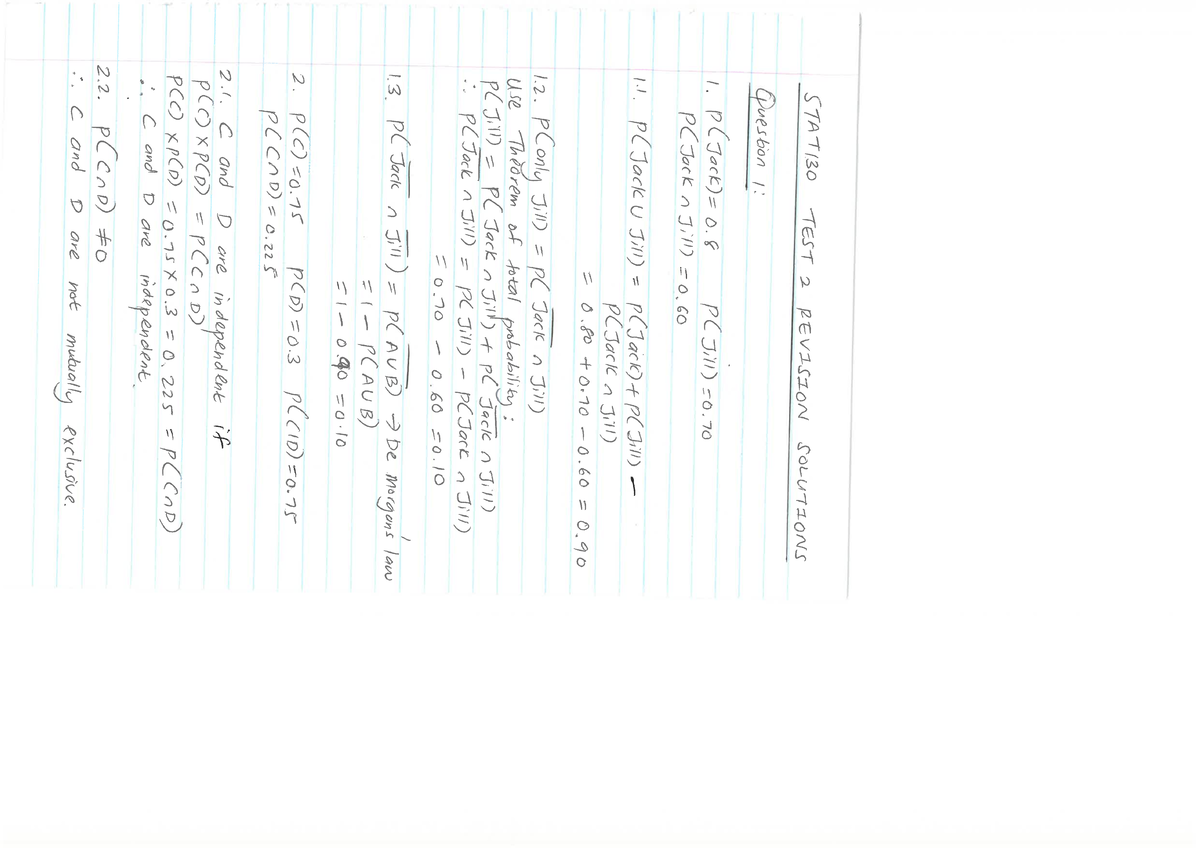 STAT130 TEST 2 REVISION SOLUTIONS
Question 1:
1. P(Jack) = 0.8 P(Jill) = 0.70
P(Jack ∩ Jill) = 0.60
1.1. P(Jack ∪ Jill) = P(Jack) + P(Jill) −
P(Jack ∩ Jill)
= 0.80 + 0.70 − 0.60 = 0.90
1.2. P(only Jill) = P(J̅a̅c̅k̅ ∩ Jill)
Use Theorem of total probability:
P(Jill) = P(Jack ∩ Jill) + P(J̅a̅c̅k̅ ∩ Jill)
∴ P(J̅a̅c̅k̅ ∩ Jill) = P(Jill) − P(Jack ∩ Jill)
= 0.70 − 0.60 = 0.10
1.3. P(J̅a̅c̅k̅ ∩ J̅i̅l̅l̅) = P(A̅ ̅∪̅ ̅B̅) → De Morgans' law
= 1 − P(A ∪ B)
= 1 − 0.90 = 0.10
2. P(C) = 0.75 P(D) = 0.3 P(C|D) = 0.75
P(C ∩ D) = 0.225
2.1. C and D are independent if
P(C) × P(D) = P(C ∩ D)
P(C) × P(D) = 0.75 × 0.3 = 0.225 = P(C ∩ D)
∴ C and D are independent.
2.2. P(C ∩ D) ≠ 0
∴ C and D are not mutually exclusive.